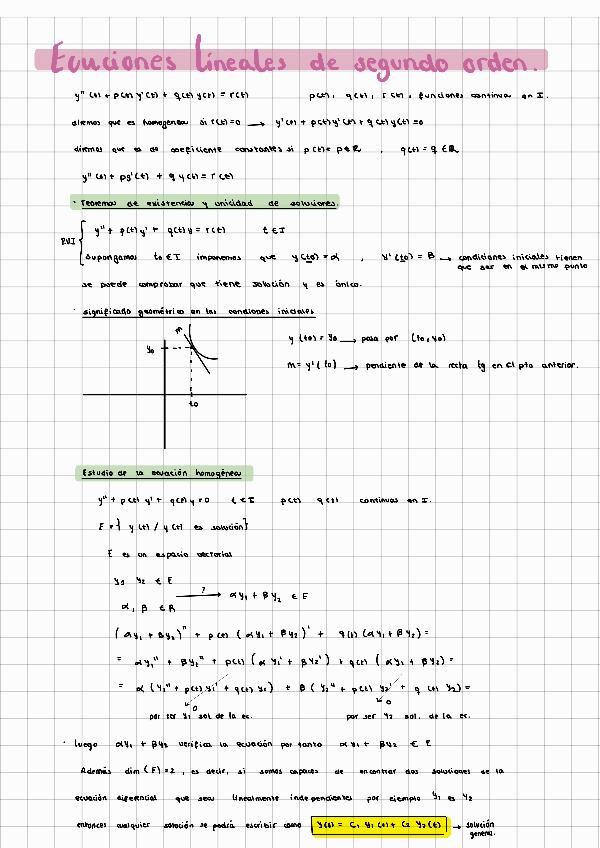 Ecuaciones lineales de segundo orden.
y''(t) + p(t) y'(t) + q(t) y(t) = r(t) p(t), q(t), r(t), funciones continua en I.
diremos que es homogénea si r(t)=0 → y''(t) + p(t) y'(t) + q(t) y(t) = 0
diremos que es de coeficiente constantes si p(t) = p ∈ R , q(t) = q ∈ R
y''(t) + p y'(t) + q y(t) = r(t)
· Teoremas de existencia y unicidad de soluciones.
PVI { y'' + p(t) y' + q(t) y = r(t) t ∈ I
Supongamos t0 ∈ I imponemos que y(t0) = α , y'(t0) = β → condiciones iniciales tienen
que ser en el mismo punto
se puede comprobar que tiene solución y es único.
· significado geométrico en las condiones iniciales
m
y0
t0
y(t0) = y0 → pasa por (t0, y0)
m = y'(t0) → pendiente de la recta tg en el pto anterior.
Estudio de la ecuación homogénea
y'' + p(t) y' + q(t) y = 0 t ∈ I p(t) q(t) continuas en I.
E = { y(t) / y(t) es solución}
E es un espacio vectorial
y1 y2 ∈ E
α, β ∈ R
? → αy1 + βy2 ∈ E
(αy1 + βy2)'' + p(t) (αy1 + βy2)' + q(t) (αy1 + βy2) =
= αy1'' + βy2'' + p(t) (αy1' + βy2') + q(t) (αy1 + βy2) =
= α (y1'' + p(t) y1' + q(t) y1) + β (y2'' + p(t) y2' + q(t) y2) =
0 0
por ser y1 sol de la ec. por ser y2 sol. de la ec.
· Luego αy1 + βy2 verifica la ecuación por tanto αy1 + βy2 ∈ E
Además dim (E) = 2 , es decir, si somos capaces de encontrar dos soluciones de la
ecuación diferencial que sean linealmente independientes por ejemplo y1 es y2
entonces cualquier solución se podrá escribir como y(t) = C1 y1(t) + C2 y2(t) → solución
general.